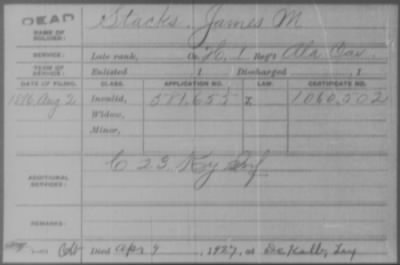 DEAD
NAME OF SOLDIER: Stacks, James M
SERVICE: Late rank, Co. H, 1 Reg't Ala Cav.
TERM OF SERVICE: Enlisted , 1 Discharged , 1
DATE OF FILING. CLASS. APPLICATION NO. LAW. CERTIFICATE NO.
Aug 2 Invalid, 571,655 1060,502
Widow,
Minor,
ADDITIONAL SERVICES: C 23 Ky Inf
REMARKS:
Died Apr 9, 1927, at DeKalb,